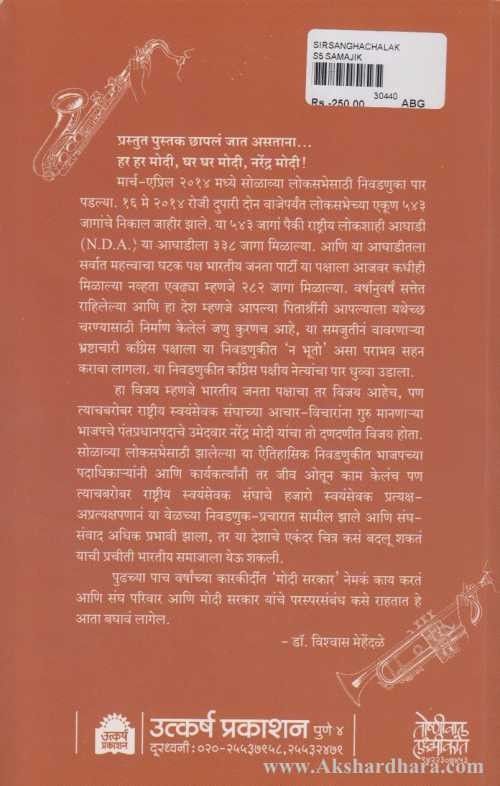 SIRSANGHACHALAK
S5 SAMAJIK
30440
Rs.-250.00 ABG
प्रस्तुत पुस्तक छापलं जात असताना...
हर हर मोदी, घर घर मोदी, नरेंद्र मोदी !
मार्च-एप्रिल २०१४ मध्ये सोळाव्या लोकसभेसाठी निवडणुका पार
पडल्या. १६ मे २०१४ रोजी दुपारी दोन वाजेपर्यंत लोकसभेच्या एकूण ५४३
जागांचे निकाल जाहीर झाले. या ५४३ जागां पैकी राष्ट्रीय लोकशाही आघाडी
(N.D.A.) या आघाडीला ३३८ जागा मिळाल्या. आणि या आघाडीतला
सर्वात महत्त्वाचा घटक पक्ष भारतीय जनता पार्टी या पक्षाला आजवर कधीही
मिळाल्या नव्हता एवढ्या म्हणजे २८२ जागा मिळाल्या. वर्षानुवर्षं सत्तेत
राहिलेल्या आणि हा देश म्हणजे आपल्या पिताश्रींनी आपल्याला यथेच्छ
चरण्यासाठी निर्माण केलेलं जणु कुरणच आहे, या समजुतीनं वावरणाऱ्या
भ्रष्टाचारी काँग्रेस पक्षाला या निवडणुकीत 'न भूतो' असा पराभव सहन
करावा लागला. या निवडणुकीत काँग्रेस पक्षीय नेत्यांचा पार धुव्वा उडाला.
हा विजय म्हणजे भारतीय जनता पक्षाचा तर विजय आहेच, पण
त्याचबरोबर राष्ट्रीय स्वयंसेवक संघाच्या आचार-विचारांना गुरु मानणाऱ्या
भाजपचे पंतप्रधानपदाचे उमेदवार नरेंद्र मोदी यांचा तो दणदणीत विजय होता.
सोळाव्या लोकसभेसाठी झालेल्या या ऐतिहासिक निवडणुकीत भाजपच्या
पदाधिकाऱ्यांनी आणि कार्यकर्त्यांनी तर जीव ओतून काम केलंच पण
त्याचबरोबर राष्ट्रीय स्वयंसेवक संघाचे हजारो स्वयंसेवक प्रत्यक्ष-
अप्रत्यक्षपणानं या वेळच्या निवडणुक-प्रचारात सामील झाले आणि संघ-
संवाद अधिक प्रभावी झाला, तर या देशाचे एकंदर चित्र कसं बदलू शकतं
याची प्रचीती भारतीय समाजाला येऊ शकली.
पुढच्या पाच वर्षांच्या कारकीर्दीत 'मोदी सरकार' नेमकं काय करतं
आणि संघ परिवार आणि मोदी सरकार यांचे परस्परसंबंध कसे राहतात हे
आता बघावं लागेल.
- डॉ. विश्वास मेहेंदळे
उत्कर्ष
प्रकाशन
उत्कर्ष प्रकाशन पुणे ४
दूरध्वनी : ०२०-२५५३७९५८, २५५३२४७९
www.Akshardhara.com